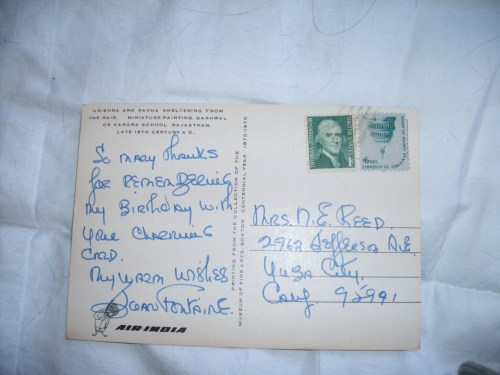 KRISHNA AND RADHA SHELTERING FROM
THE RAIN. MINIATURE PAINTING, GARHWAL
OR KANGRA SCHOOL, RAJASTHAN.
LATE 18TH CENTURY A.D.
So many thanks
for remembering
my Birthday with
your charming
card.
My warm wishes
Joan Fontaine.
AIR-INDIA
PRINTING FROM THE COLLECTION OF THE
MUSEUM OF FINE ARTS, BOSTON CENTENNIAL YEAR 1870-1970
Mrs. N. E. Reed.
2962 Jefferson Ave
Yuba City.
Calif 95991